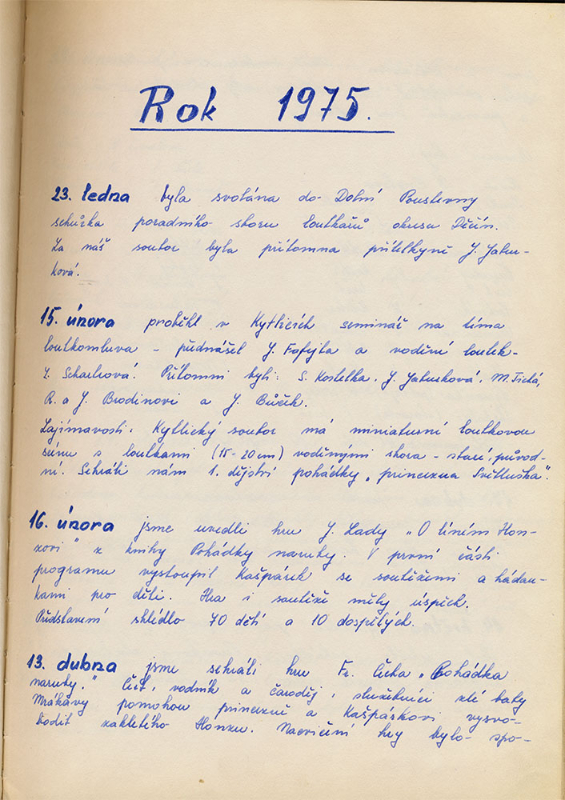 Rok 1975.
23. ledna byla svolána do Dolní Poustevny
schůzka poradního sboru loutkářů okresu Děčín.
Za náš soubor byla přítomna přítelkyně J. Jakus-
ková.
15. února proběhl v Kytlicích seminář na téma
loutkomluva - přednášel J. Fafejta a vodění loutek-
Z. Schachová. Přítomni byli: S. Kostelka, J. Jakusková, M. Tichá,
R. a J. Brodinovi a J. Bůček.
Zajímavosti: Kytlický soubor má miniaturní loutkovou
scénu s loutkami (15-20 cm) voděnými shora - staré, původ-
ní. Sehráli nám 1. dějství pohádky "princezna Světluška".
16. února jsme uvedli hru J. Lady "O líném Hon-
zovi" z knihy Pohádky naruby. V první části
programu vystoupil Kašpárek se soutěžemi a hádan-
kami pro děti. Hra i soutěž měly úspěch.
Představení shlédlo 70 dětí a 10 dospělých.
13. dubna jsme sehráli hru Fr. Čecha "Pohádka
naruby." Čert, vodník a čaroděj, služebníci zlé baby
Mrákavy pomohou princezně a Kašpárkovi vysvo-
bodit zakletého Honzu. Nacvičení hry bylo spo-